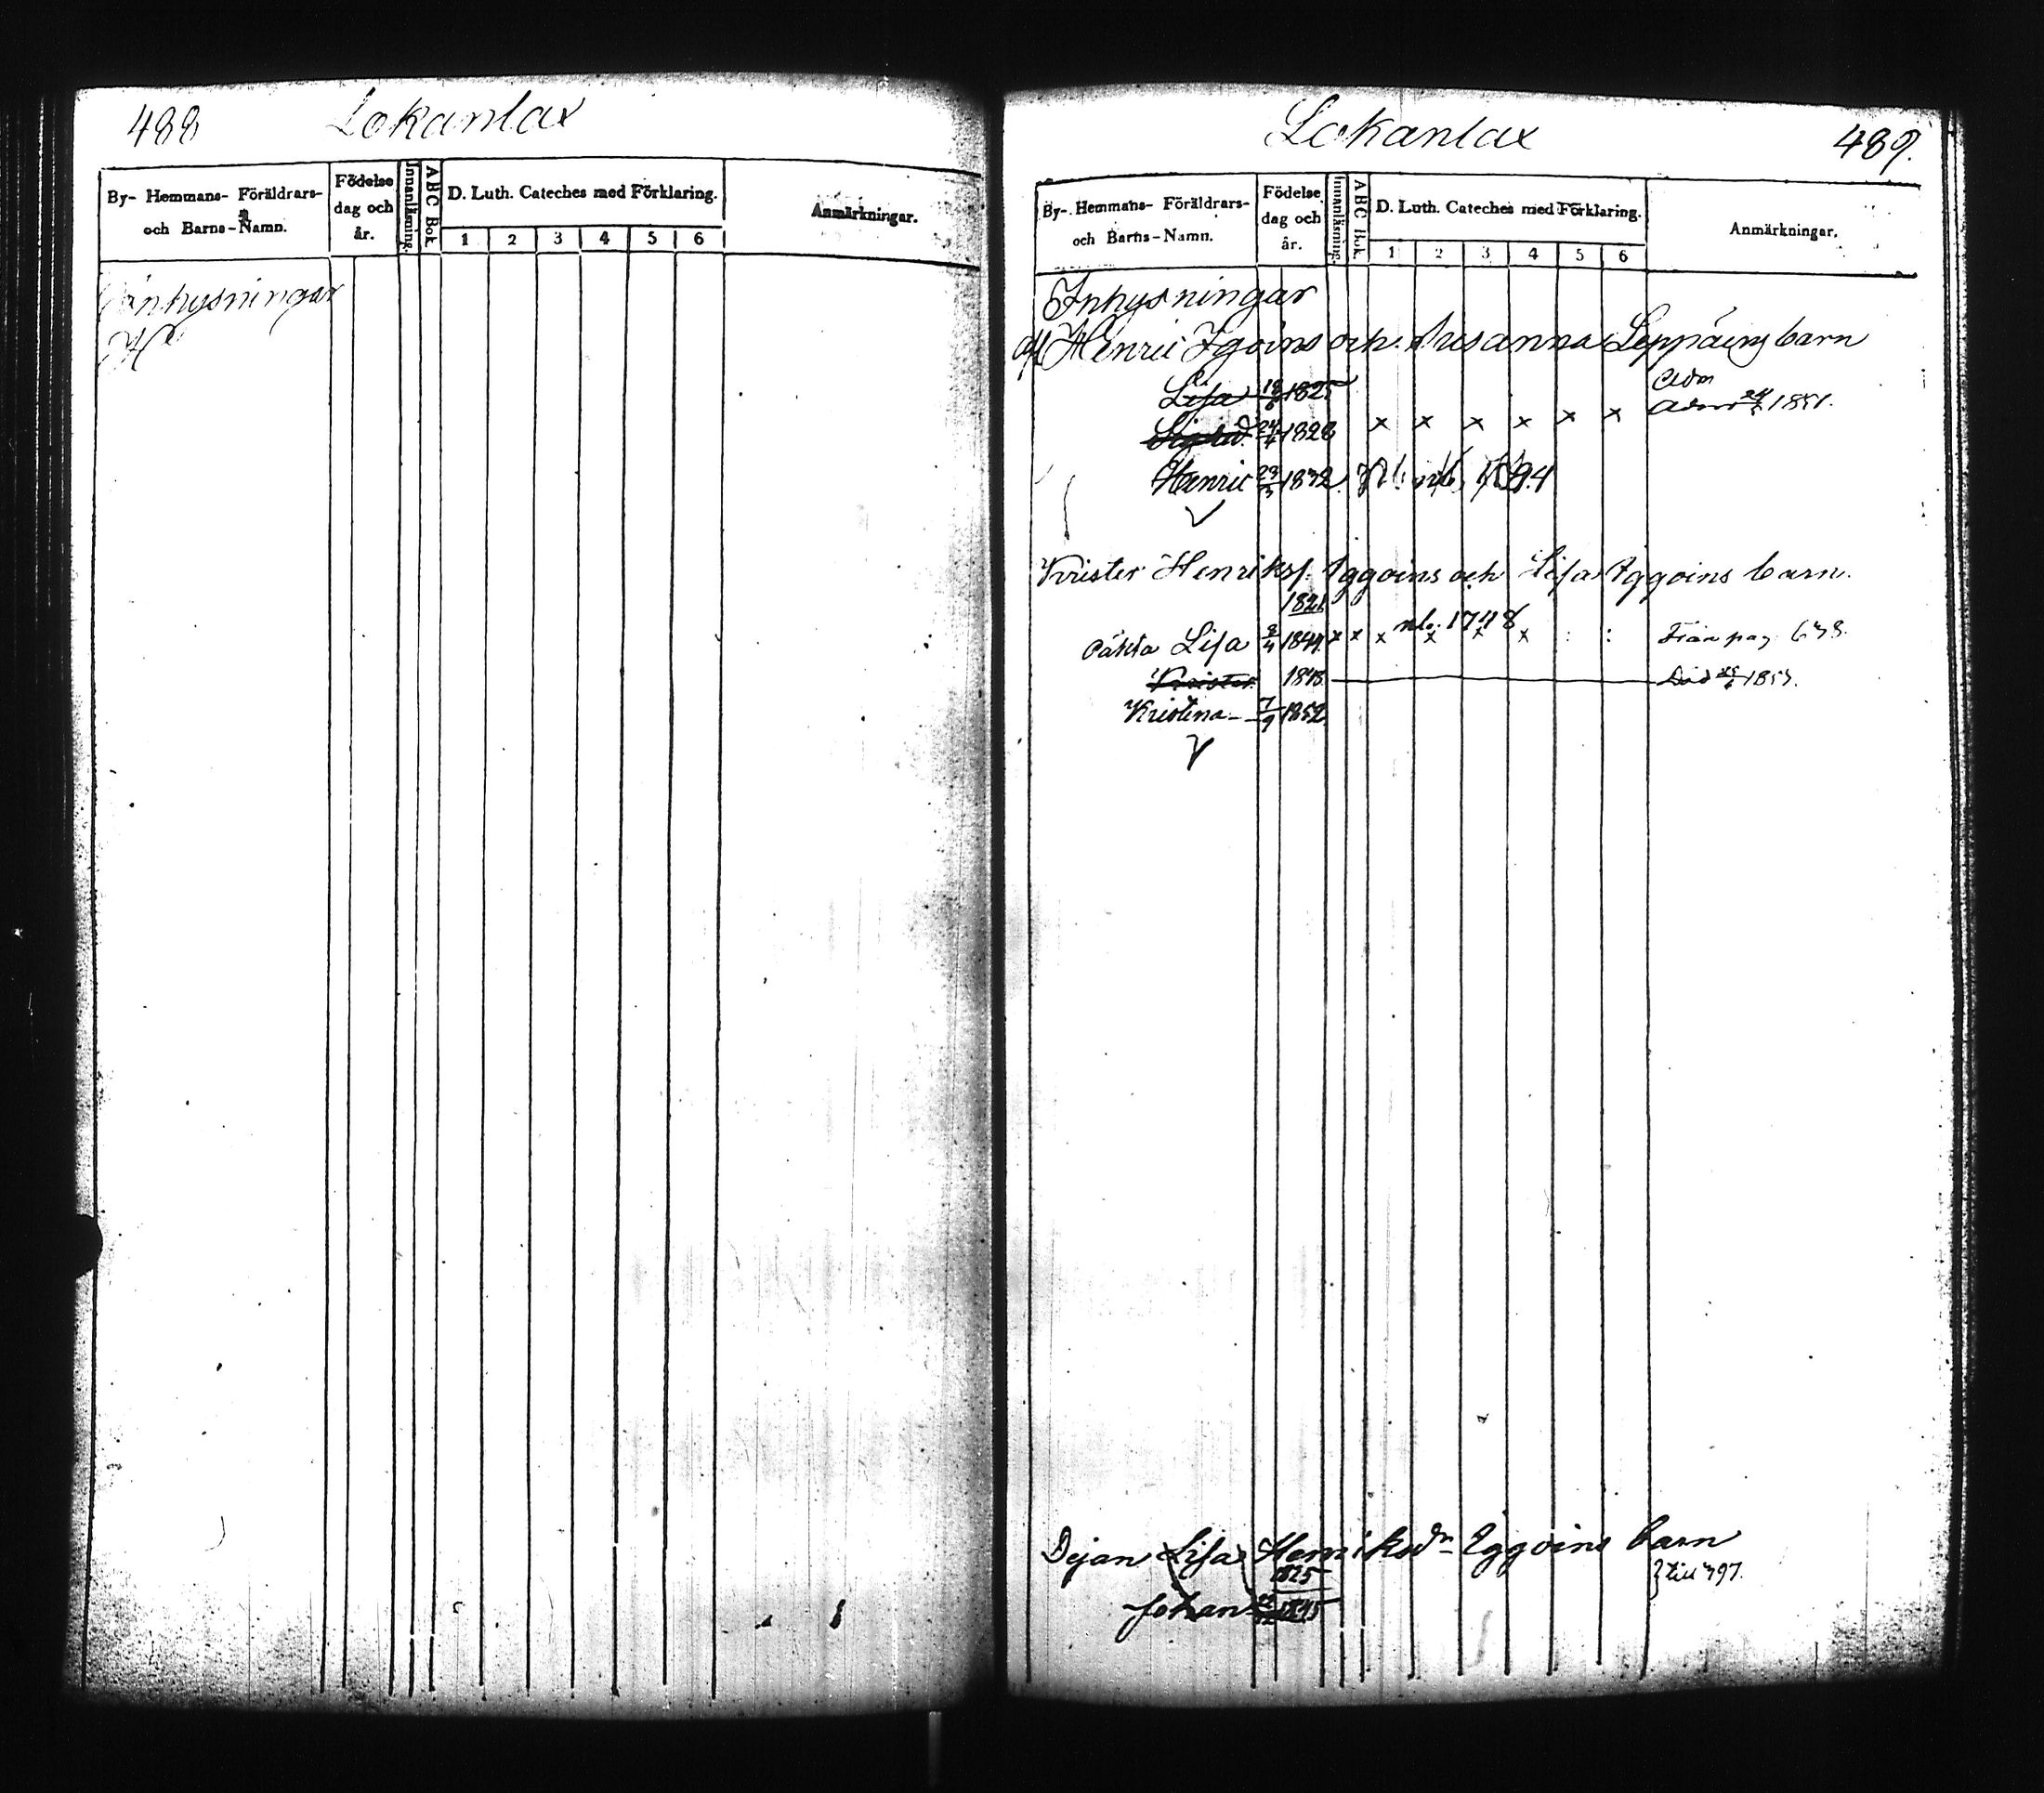 488 Lokanlax
By- Hemmans- Föräldrars- och Barns-Namn. Födelse dag och år. Innanläsning. ABC Bok. D. Luth. Cateches med Förklaring. Anmärkningar.
1 2 3 4 5 6
Inhysningar
He
Lokanlax 489.
By- Hemmans- Föräldrars- och Barns-Namn. Födelse dag och år. Innanläsning. ABC Bok. D. Luth. Cateches med Förklaring. Anmärkningar.
1 2 3 4 5 6
Inhysningar
af Henric Igoins och Susanna Leppäins barn
Lisa 1825 Adm
1828 x x x x x x 1851.
Henric 1832
Krister Henriks. Iggoins och Lisa Iggoins barn.
1821
Lisa 1844 x x x x x x : : Från pag. 638.
nb. 1748
Krister 1848 Död 1853.
Kristina 7/9 1852
Dejan Lisa Henriksdr Iggoins barn
1825 till 497.
Johan 1845